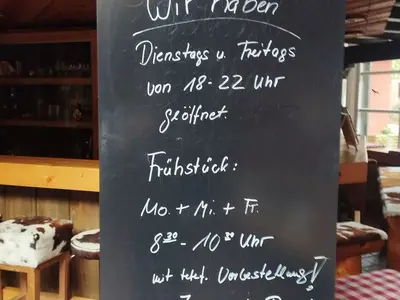 Wir haben
Dienstags u. Freitags
von 18-22 Uhr
geöffnet.
Frühstück:
Mo. + Mi. + Fr.
8³⁰ - 10³⁰ Uhr
mit telef. Vorbestellung!